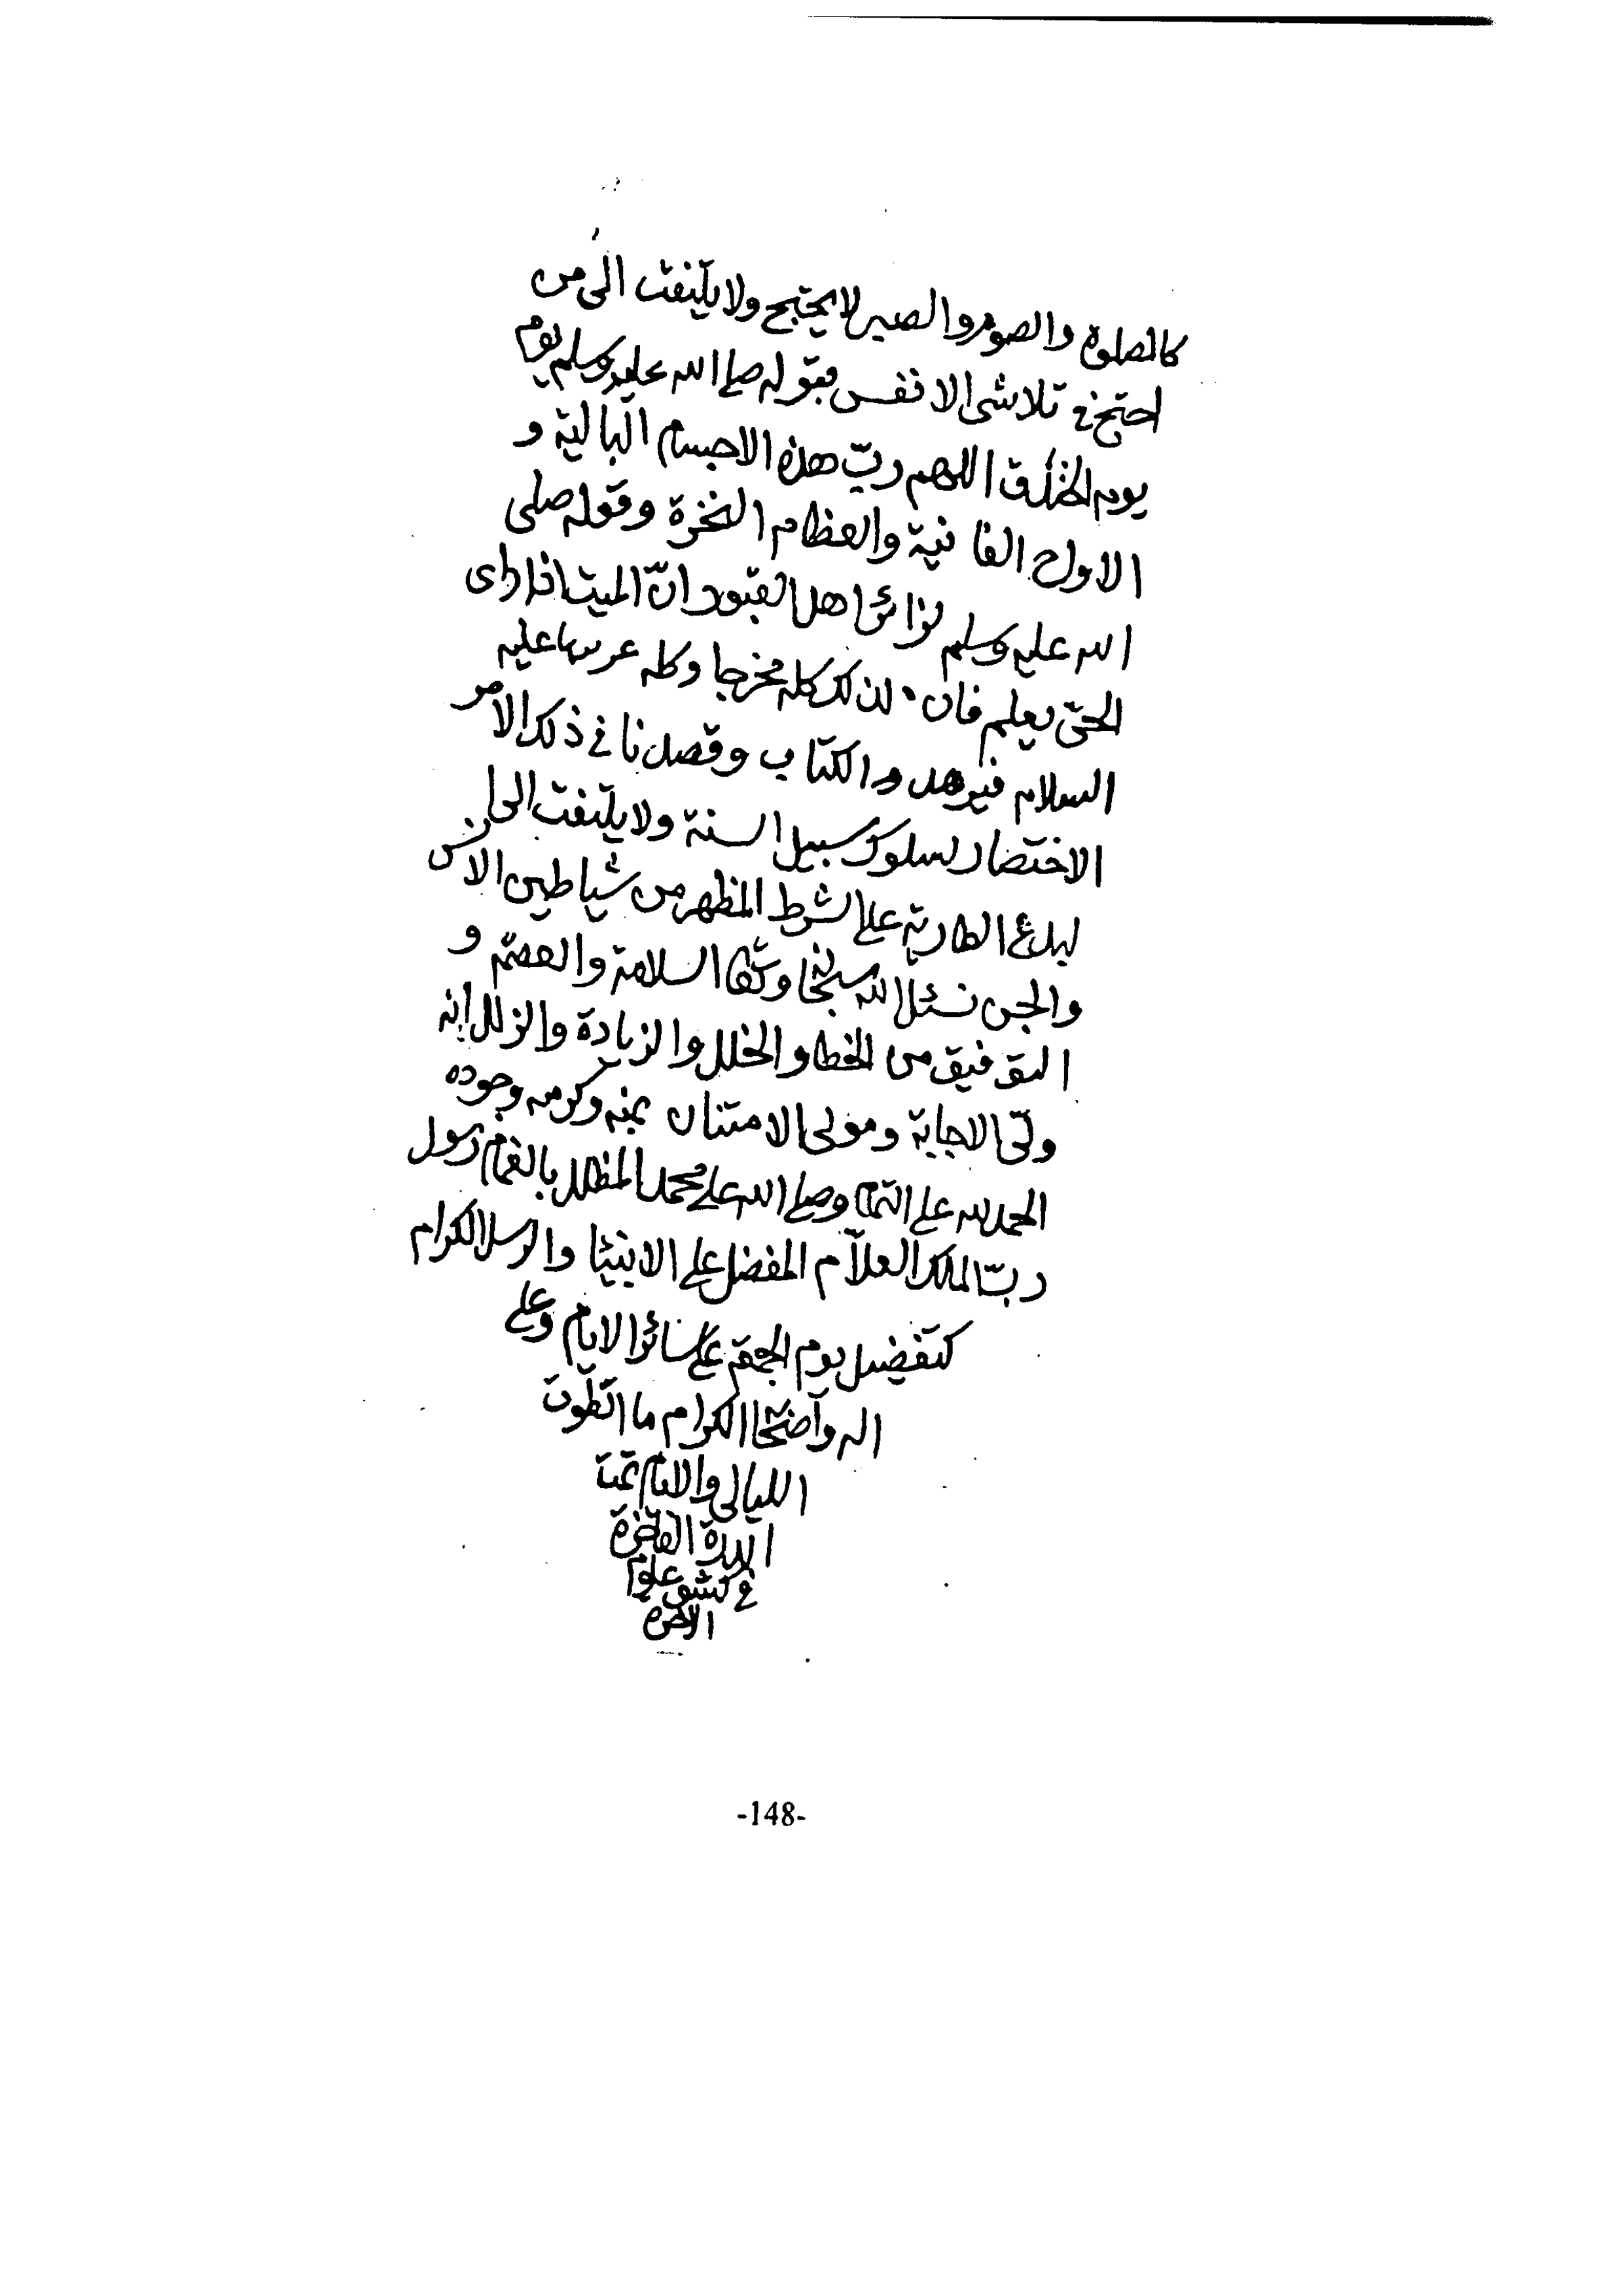 كالصلوة والصوم والصبر لا يحتج ولا يلتفت الى من
احتج في تلاشى الانفس بقوله صلى الله عليه وسلم يوم
يوم الخندق اللهم ربّ هذه الاجسام البالية و
الارواح الفانية والعظام النخرة وقوله صلى
الله عليه وسلم لزائر اهل القبور انّ الميت اذا راى
الحىّ يعلم فان لذلك كله مخرجا وكله عليه
السلام والكتاب وقصدنا في ذلك الامر
الاختصار لسلوك سبيل السنة ولا يلتفت الى
لبدع الطارية على الشرط المظهر من شياطين الانس
والجن نسئل الله سبحانه وتعالى السلامة والعصمة و
التوفيق من الخطا والخلل والزيادة والزلل انه
ولىّ الاجابة ومولى الامتنان بمنه وكرمه وجوده
الحمد لله على التمام وصلى الله على محمد المظلل بالغمام رسول
ربّ الملك العلاّم المفضل على الانبياء والرسل الكرام
كتفضيل يوم الجمعة على سائر الايام وعلى
اله واصحابه الكرام ما
الليالى والايام تمت
الدرة الفاخرة
في كشف علوم
الاخرة
-148-